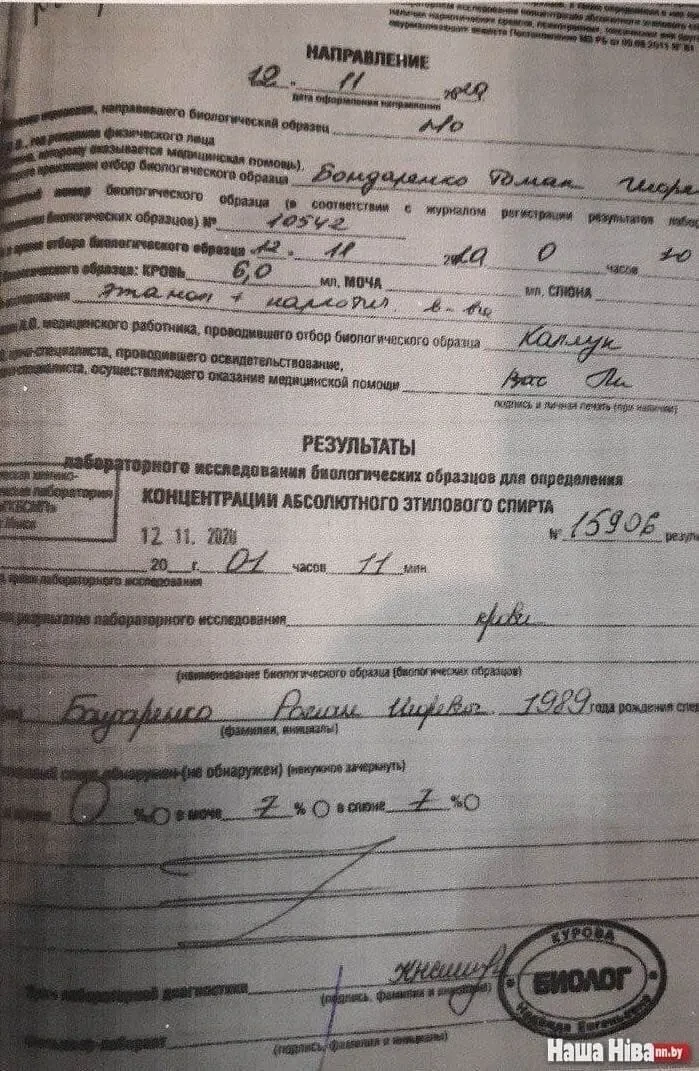 наличия наркотических средств, психотропных, токсических или других
одурманивающих веществ Постановление МЗ РБ от 09.08.2011 № 81
НАПРАВЛЕНИЕ
12. 11 2020
дата оформления направления
направившего биологический образец МО
год рождения физического лица
которому оказывается медицинская помощь),
отбор биологического образца Бондаренко Роман Игоре
номер биологического образца (в соответствии с журналом регистрации результатов
биологических образцов) № 10542
время отбора биологического образца 12. 11 2020 0 часов 10
биологического образца: КРОВЬ 6,0 мл, МОЧА мл, СЛЮНА
этанол + наркотич. в-ва
И.О. медицинского работника, проводившего отбор биологического образца Каплун
врача-специалиста, проводившего освидетельствование,
специалиста, осуществляющего оказание медицинской помощи
подпись и личная печать (при наличии)
РЕЗУЛЬТАТЫ
лабораторного исследования биологических образцов для определения
КОНЦЕНТРАЦИИ АБСОЛЮТНОГО ЭТИЛОВОГО СПИРТА
лаборатория
12 11. 2020
№ 15906
20 г. 01 часов 11 мин
время лабораторного исследования
результатов лабораторного исследования крови
(наименование биологического образца (биологических образцов)
Бондаренко Роман Игоревич 1989 года рождения
(фамилия, инициалы)
спирт обнаружен (не обнаружен) (ненужное зачеркнуть)
в крови 0 %О в моче Z %О в слюне Z %О
Врач лабораторной диагностики
(подпись, фамилия и инициалы)
Фельдшер-лаборант
(подпись, фамилия и инициалы)
КУРОВА
БИОЛОГ
Надежда Евгеньевна
Наша Ніва nn.by